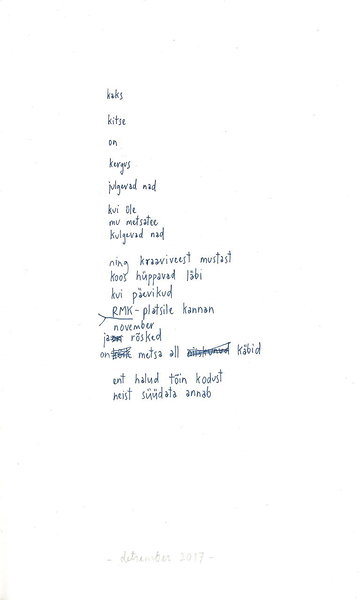 kaks
kitse
on
kergus
julgevad nad
kui üle
mu metsatee
kulgevad nad
ning kraaviveest mustast
koos hüppavad läbi
kui päevikud
RMK-platsile kannan
november
ja rõsked
on metsa all käbid
ent halud tõin kodust
neist süüdata annab
- detsember 2017 -